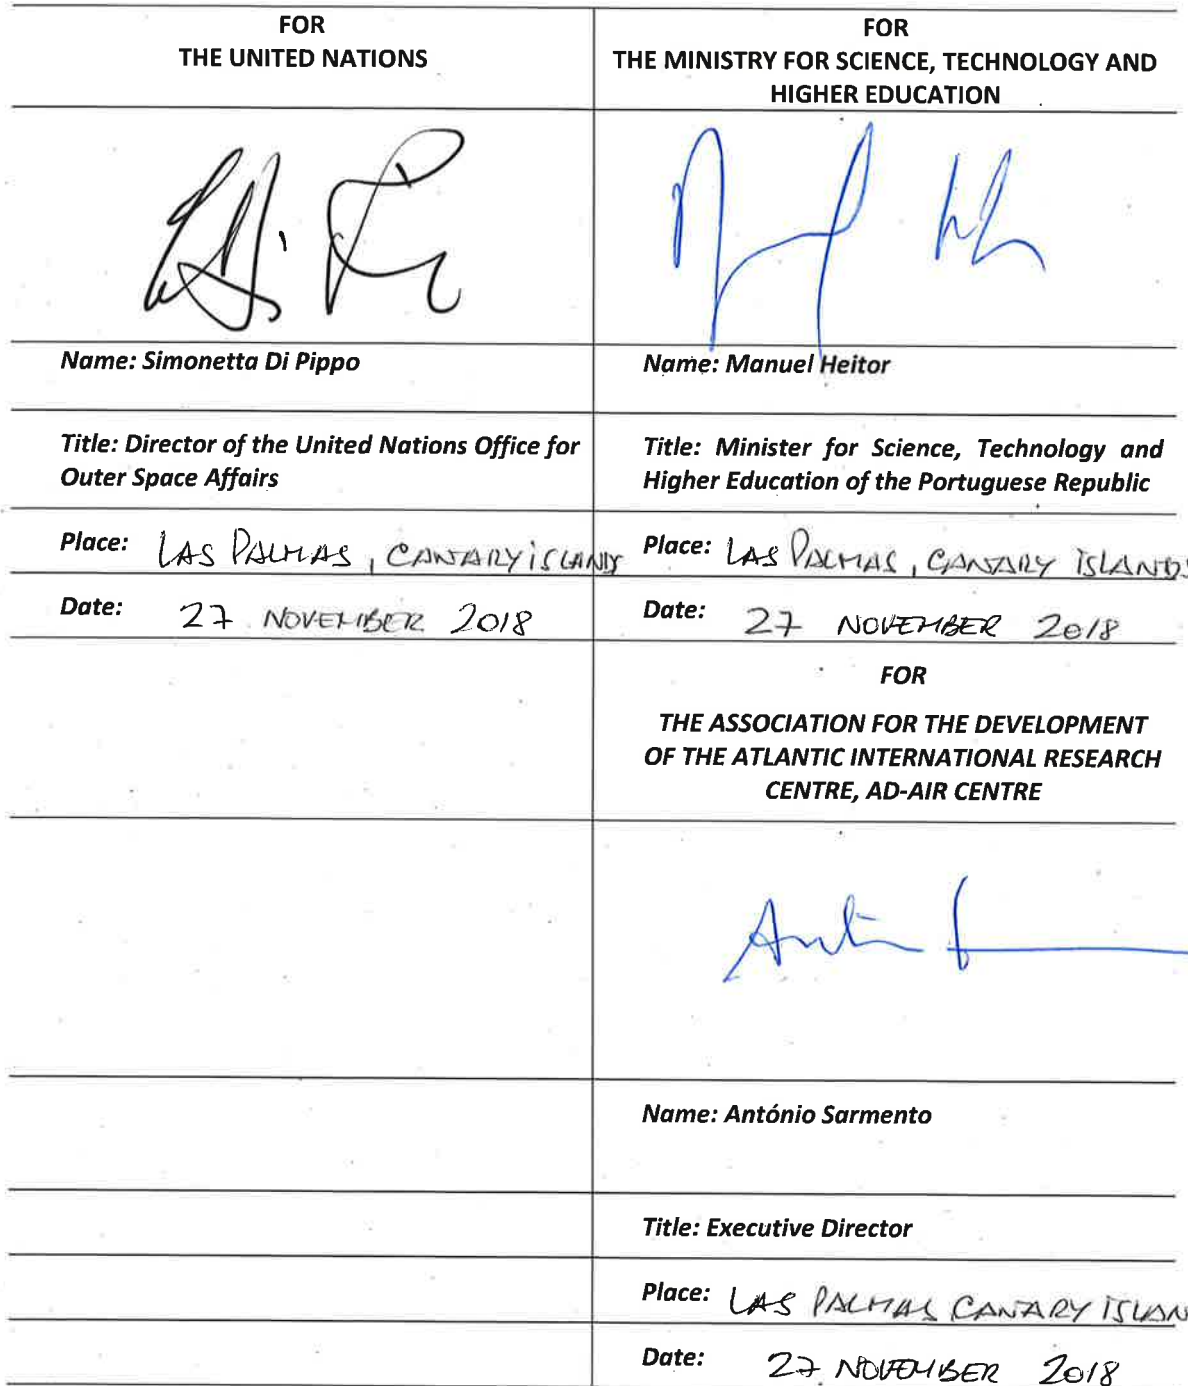 FOR
THE UNITED NATIONS
FOR
THE MINISTRY FOR SCIENCE, TECHNOLOGY AND
HIGHER EDUCATION
Name: Simonetta Di Pippo
Name: Manuel Heitor
Title: Director of the United Nations Office for
Outer Space Affairs
Title: Minister for Science, Technology and
Higher Education of the Portuguese Republic
Place: LAS PALMAS, CANARY ISLANDS
Place: LAS PALMAS, CANARY ISLANDS
Date: 27 NOVEMBER 2018
Date: 27 NOVEMBER 2018
FOR
THE ASSOCIATION FOR THE DEVELOPMENT
OF THE ATLANTIC INTERNATIONAL RESEARCH
CENTRE, AD-AIR CENTRE
Name: António Sarmento
Title: Executive Director
Place: LAS PALMAS CANARY ISLAN
Date: 27 NOVEMBER 2018